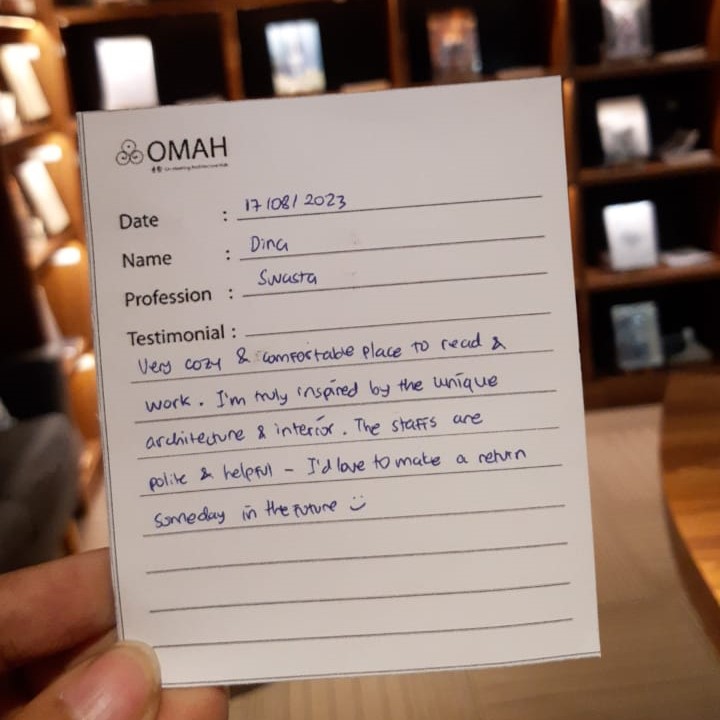 OMAH
Date : 17/08/2023
Name : Dina
Profession : Swasta
Testimonial :
Very cozy & comfortable place to read &
work. I'm truly inspired by the unique
architecture & interior. The staffs are
polite & helpful – I'd love to make a return
someday in the future :)